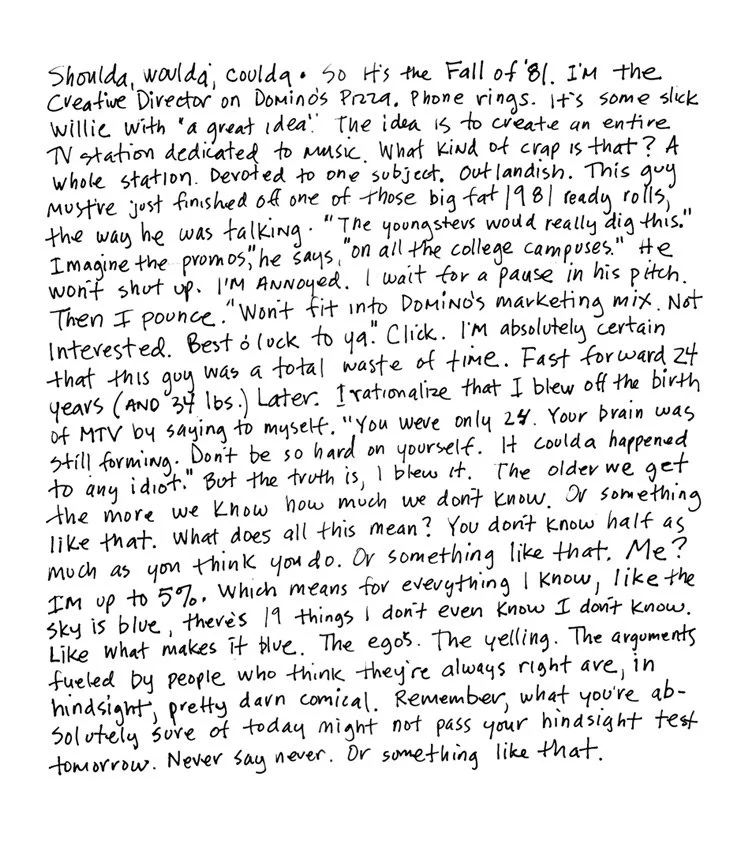 Shoulda, woulda, coulda. So it's the Fall of '81. I'm the
Creative Director on Domino's Pizza. Phone rings. It's some slick
Willie with "a great idea." The idea is to create an entire
TV station dedicated to music. What kind of crap is that? A
whole station. Devoted to one subject. Outlandish. This guy
must've just finished off one of those big fat 1981 ready rolls,
the way he was talking. "The youngsters would really dig this."
Imagine the promos," he says, "on all the college campuses." He
won't shut up. I'm ANNOYED. I wait for a pause in his pitch.
Then I pounce. "Won't fit into Domino's marketing mix. Not
Interested. Best o' luck to ya." Click. I'm absolutely certain
that this guy was a total waste of time. Fast forward 24
years (AND 34 lbs.) Later. I rationalize that I blew off the birth
of MTV by saying to myself. "You were only 24. Your brain was
still forming. Don't be so hard on yourself. It coulda happened
to any idiot." But the truth is, I blew it. The older we get
the more we know how much we don't know. Or something
like that. What does all this mean? You don't know half as
much as you think you do. Or something like that. Me?
I'm up to 5%. Which means for everything I know, like the
sky is blue, there's 19 things I don't even know I don't know.
Like what makes it blue. The ego's. The yelling. The arguments
fueled by people who think they're always right are, in
hindsight, pretty darn comical. Remember, what you're ab-
solutely sure of today might not pass your hindsight test
tomorrow. Never say never. Or something like that.